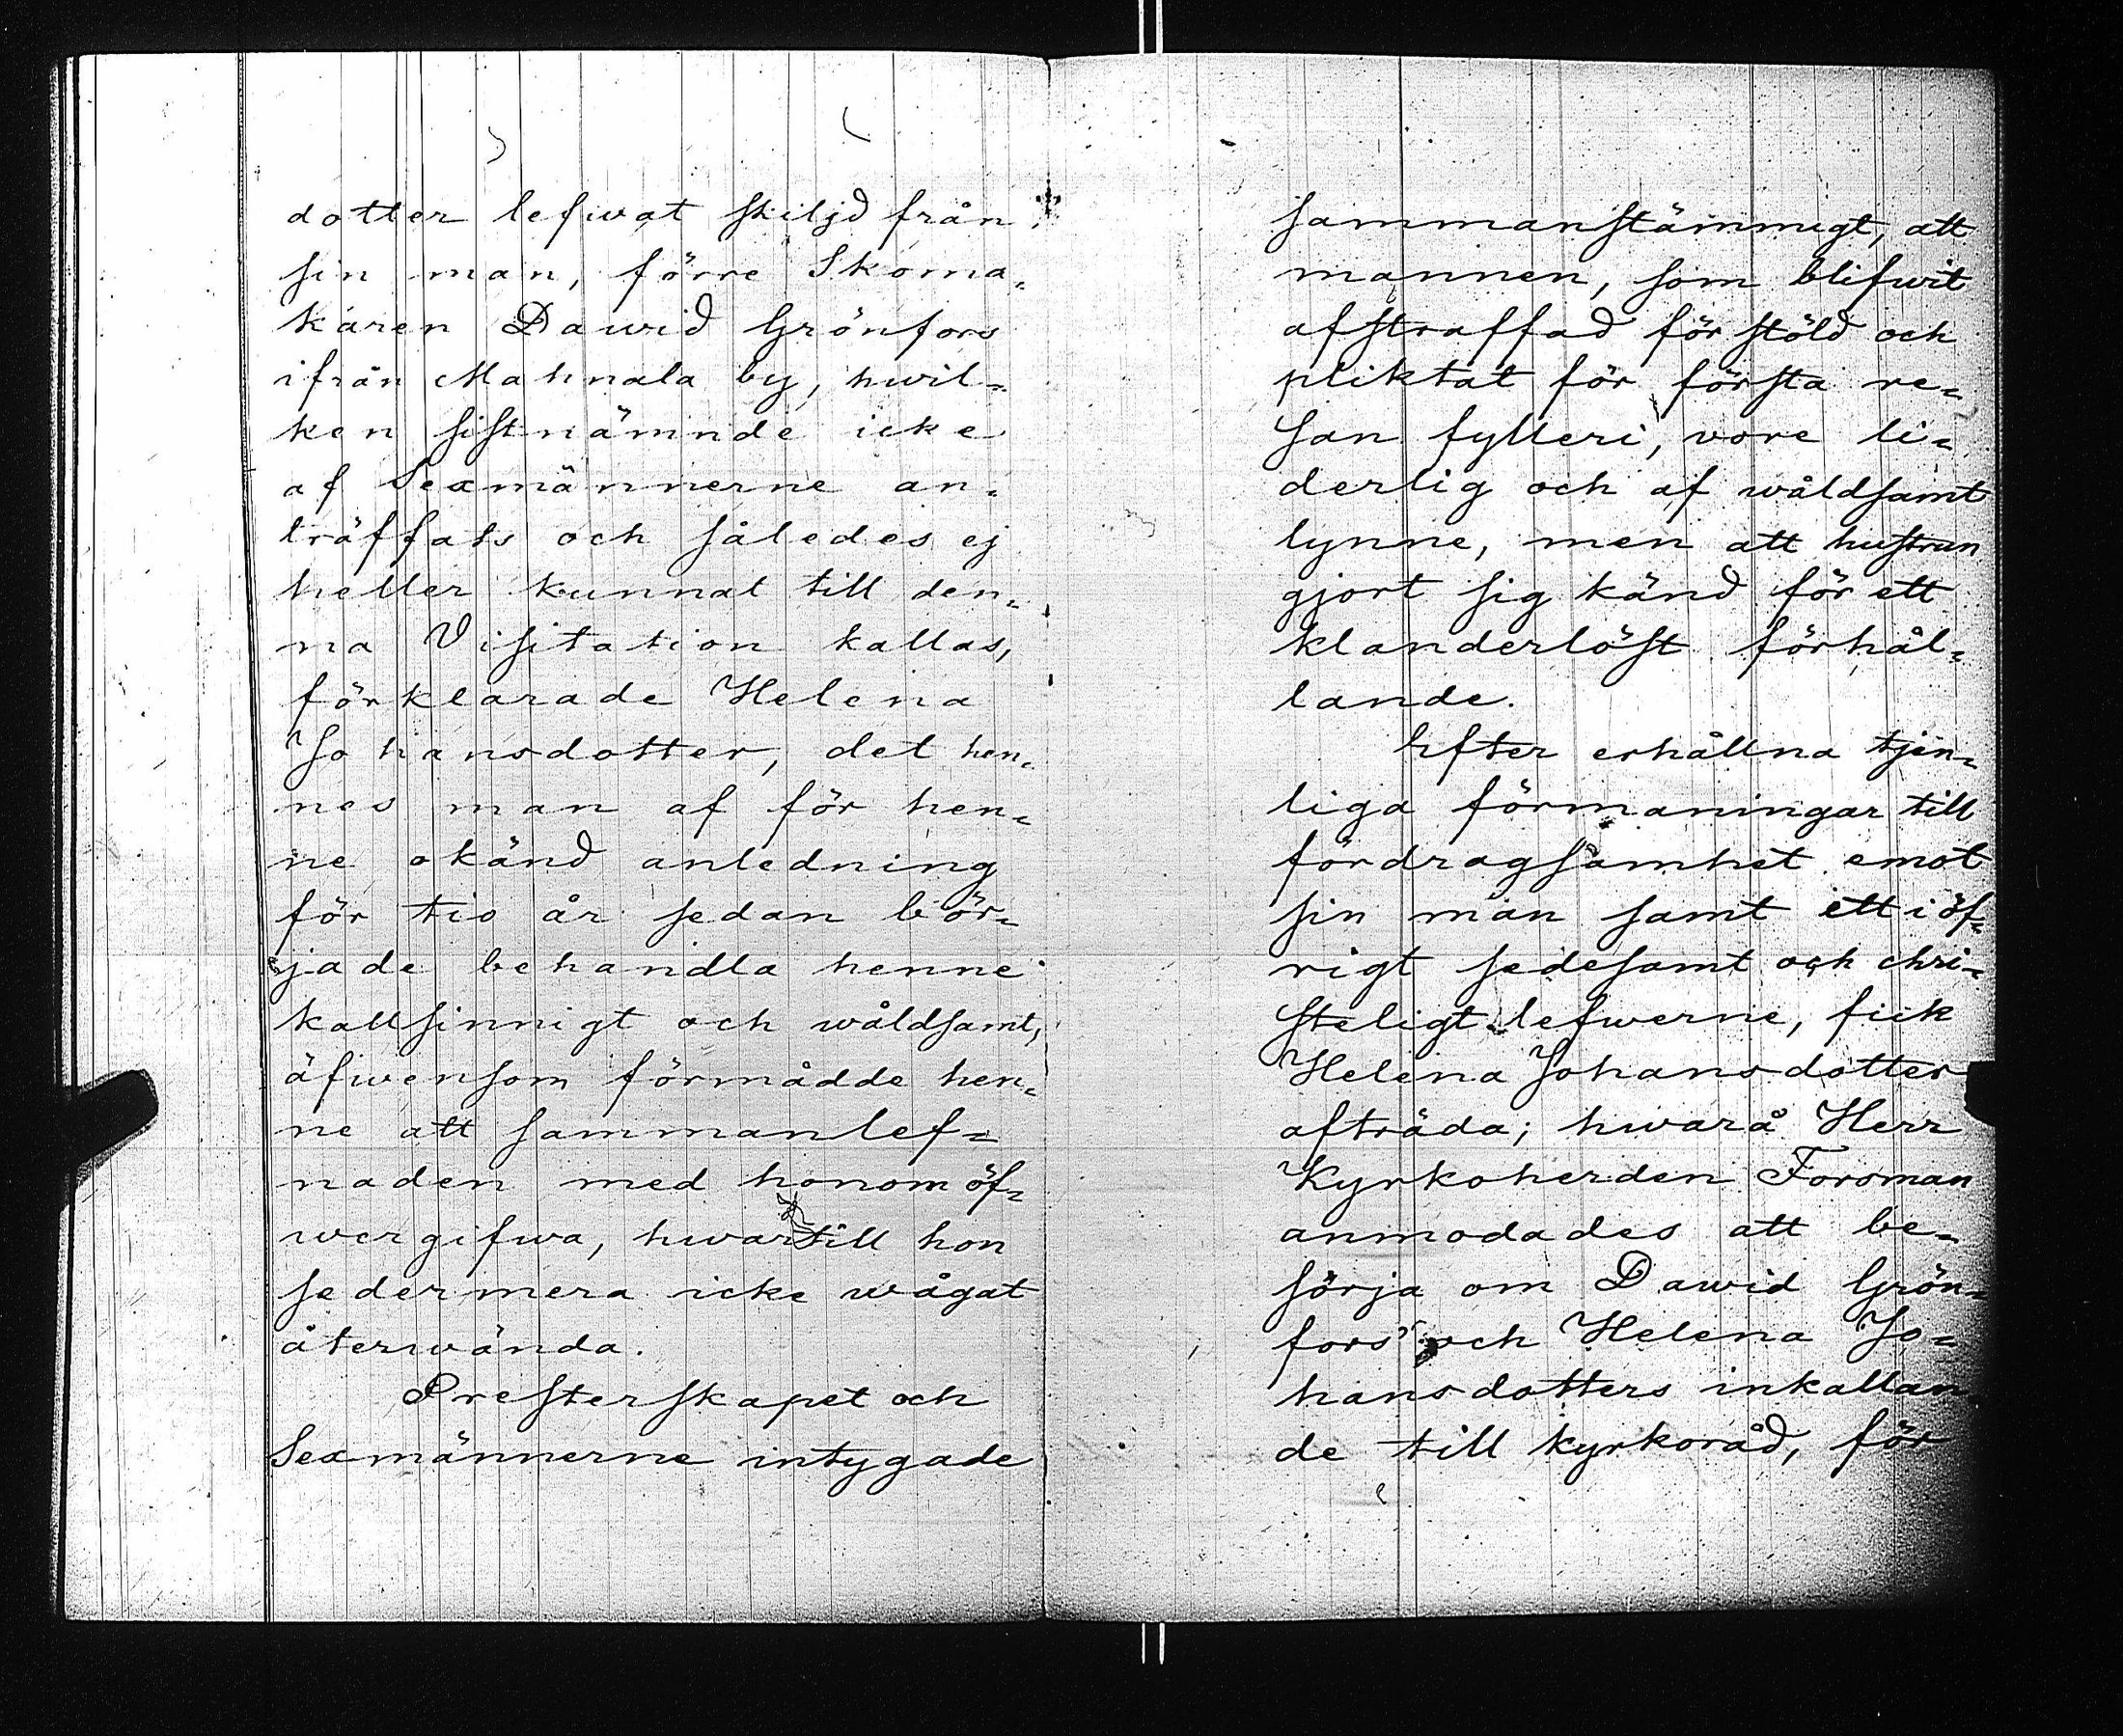 dotter lefwat skiljd från
sin man, förre Skoma-
karen Dawid Grönfors
ifrån Mahnala by, hwil-
ken sistnämnde icke
af Sexmännerne an-
träffats och således ej
heller kunnat till den-
na Visitation kallas,
förklarade Helena
Johansdotter, det hen-
nes man af för hen-
ne okänd anledning
för tio år sedan bör-
jade behandla henne
kallsinnigt och wåldsamt,
äfwensom förmådde hen-
ne att sammanlef-
naden med honom öf-
wergifwa, hwartill hon
sedermera icke wågat
återwända.
Presterskapet och
Sexmännerne intygade
sammanstämmigt, att
mannen, som blifwit
afstraffad för stöld och
pliktat för första re-
san fylleri, vore li-
derlig och af wåldsamt
lynne, men att hustrun
gjort sig känd för ett
klanderlöst förhål-
lande.
Efter erhållna tjen-
liga förmaningar till
fördragsamhet emot
sin man samt ett i öf-
rigt sedesamt och chri-
steligt lefwerne, fick
Helena Johansdotter
afträda; hwarå Herr
Kyrkoherden Forsman
anmodades att be-
sörja om Dawid Grön-
fors' och Helena Jo-
hansdotters inkallan-
de till kyrkoråd, för